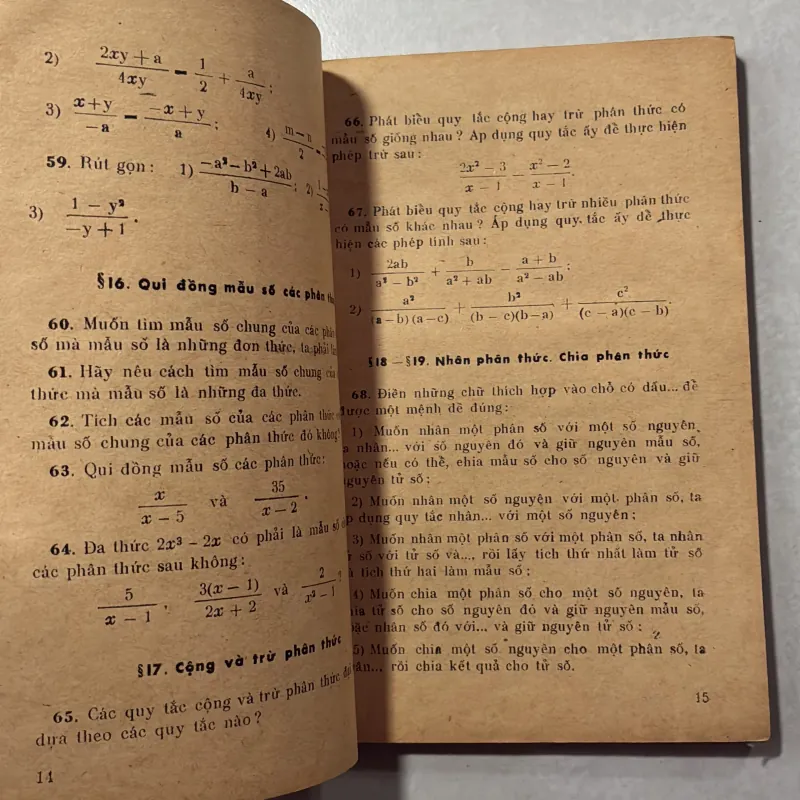 2) (2xy + a)/(4xy) − 1/2 + a/(4xy);
3) (x + y)/(−a) − (−x + y)/a; 4) (m − n)/2 −
59. Rút gọn: 1) (−a² − b² + 2ab)/(b − a); 2)
3) (1 − y²)/(−y + 1).
§16. Qui đồng mẫu số các phân
60. Muốn tìm mẫu số chung của các phân
số mà mẫu số là những đơn thức, ta phải
61. Hãy nêu cách tìm mẫu số chung của
thức mà mẫu số là những đa thức.
62. Tích các mẫu số của các phân thức
mẫu số chung của các phân thức đó không?
63. Qui đồng mẫu số các phân thức:
x/(x − 5) và 35/(x − 2).
64. Đa thức 2x³ − 2x có phải là mẫu số
các phân thức sau không:
5/(x − 1), 3(x − 1)/(2x + 2) và 2/(x² − 1)?
§17. Cộng và trừ phân thức
65. Các quy tắc cộng và trừ phân thức
dựa theo các quy tắc nào?
14
66. Phát biểu quy tắc cộng hay trừ phân thức có
mẫu số giống nhau? Áp dụng quy tắc ấy để thực hiện
phép trừ sau:
(2x² − 3)/(x − 1) − (x² − 2)/(x − 1).
67. Phát biểu quy tắc cộng hay trừ nhiều phân thức
có mẫu số khác nhau? Áp dụng quy tắc ấy để thực
hiện các phép tính sau:
1) 2ab/(a² − b²) + b/(a² + ab) − (a + b)/(a² − ab);
2) a²/((a − b)(a − c)) + b²/((b − c)(b − a)) + c²/((c − a)(c − b)).
§18 — §19. Nhân phân thức. Chia phân thức
68. Điền những chữ thích hợp vào chỗ có dấu... để
được một mệnh đề đúng:
1) Muốn nhân một phân số với một số nguyên,
nhân... với số nguyên đó và giữ nguyên mẫu số,
hoặc nếu có thể, chia mẫu số cho số nguyên và giữ
nguyên tử số;
2) Muốn nhân một số nguyên với một phân số, ta
áp dụng quy tắc nhân... với một số nguyên;
3) Muốn nhân một phân số với một phân số, ta nhân
tử số với tử số và..., rồi lấy tích thứ nhất làm tử số
và tích thứ hai làm mẫu số;
4) Muốn chia một phân số cho một số nguyên, ta
chia tử số cho số nguyên đó và giữ nguyên mẫu số,
hoặc nhân số đó với... và giữ nguyên tử số;
5) Muốn chia một số nguyên cho một phân số, ta
nhân... rồi chia kết quả cho tử số.
15